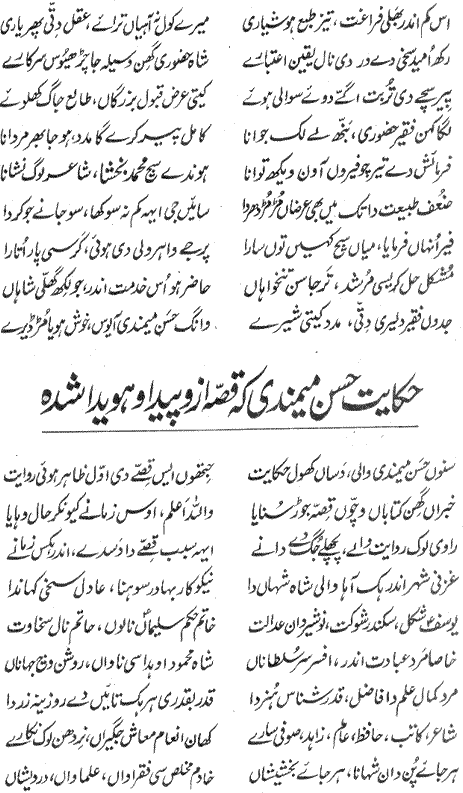 اس کم اندر بھلی فراغت، تیز طبع ہوشیاری میرے کول نہ آہیاں ترائے، عقل دتی پھر یاری
رکھ امید سخی دے در دی نال یقین اعتبارے شاہ حضوری گھن وسیلہ جا پڑھیوس سرکارے
پیر سچے دی تربت اگے دوئے سوالی ہوئے کیتی عرض قبول بزرگاں، طالع جاگ کھلوئے
لگا کہن فقیر حضوری، بنھ لے لک جوانا کامل پیر کرے گا مدد، ہو جا بھرم دانا
فرمائش دے تیر چوفیروں آون ویکھ توانا ہوندے سچ محمد بخشا، شاعر لوگ نشانا
ضعف طبیعت دا تک میں بھی عرضاں مڑ مڑ کردا سائیں جی ایہہ کم نہ سوکھا، سو جانے جو کردا
فیر انہاں فرمایا، میاں سچ کہیں توں سارا پر جے واہر ولی دی ہوئی، کرسی پار اتارا
مشکل حل کریسی مرشد، ترجاسن تنخواہاں حاضر ہو اس خدمت اندر، جو لکھ گھلی شاہاں
جدوں فقیر دلیری دتی، مدد کیتی شیرے وانگ حسن میمندی آیوس، خوش ہویا مڑ ڈیرے
حکایت حسن میمندی کہ قصہ ازو پیدا و ہویدا شدہ
سنوں حسن میمندی والی، دساں کھول حکایت جتھوں ایس قصے دی اول ظاہر ہوئی روایت
خبراں گھن کتاباں وچوں قصہ جوڑ سنایا واللہ اعلم، اوس زمانے کیونکر حال وہایا
راوی لوک روایت والے، پچھلے جگ دے دانے ایہہ سبب قصے دا دسدے، اندر ہکس زمانے
غزنی شہر اندر ہک آہا والی شاہ شہاں دا نیکو کار بہادر سوہنا، عادل سخی کہاندا
یوسف شکل، سکندر شوکت، نوشیروان عدالت خاتم حکم سلیماں نالوں، حاتم نال سخاوت
خاصا مرد عبادت اندر، افسر سر سلطاناں شاہ محمود اوہدا سی ناواں، روشن وچ جہاناں
مرد کمال علم دا فاضل، قدر شناس ہنر دا قدر بقدری ہر ہک تائیں دے روزینہ زردا
شاعر، کاتب، حافظ، عالم، زاہد، صوفی سارے کھان انعام معاش جگیراں، نردھن لوک نکارے
ہر جائے پن دان شہانا، ہر جائے بخشیشاں خادم مخلص سی فقراواں، علماواں، درویشاں